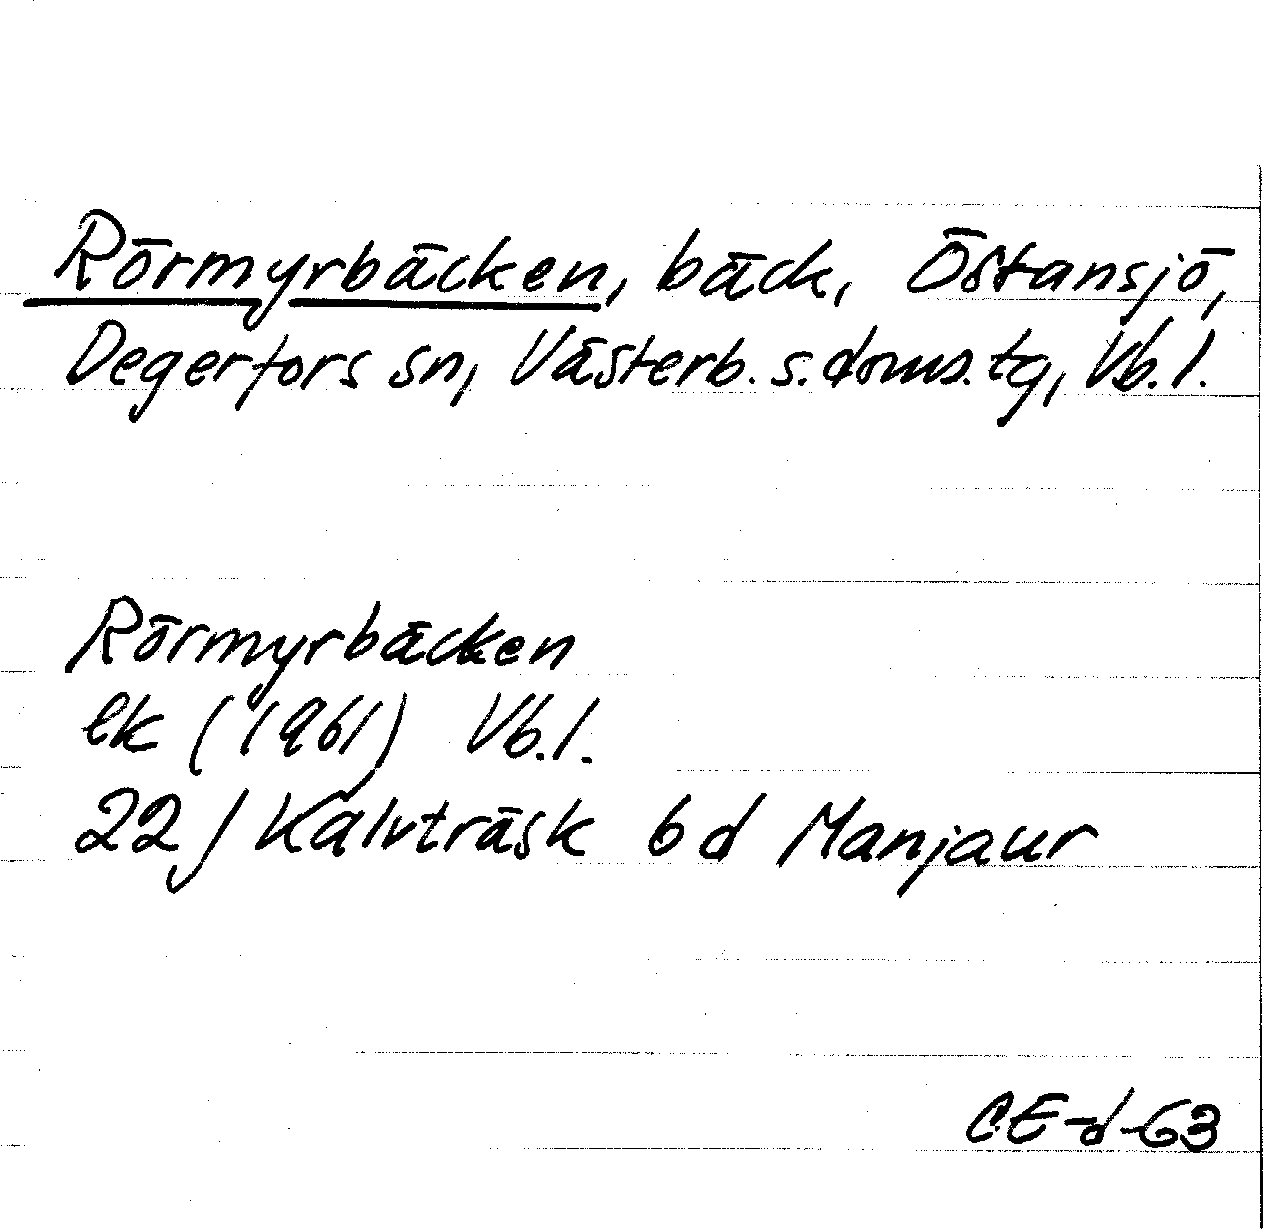 Rörmyrbäcken, bäck, Östansjö,
Degerfors sn, Västerb. s. doms. tg, Vb. l.
Rörmyrbäcken
ek (1961) Vb. l.
22 J Kalvträsk 6 d Manjaur
CE-d-63